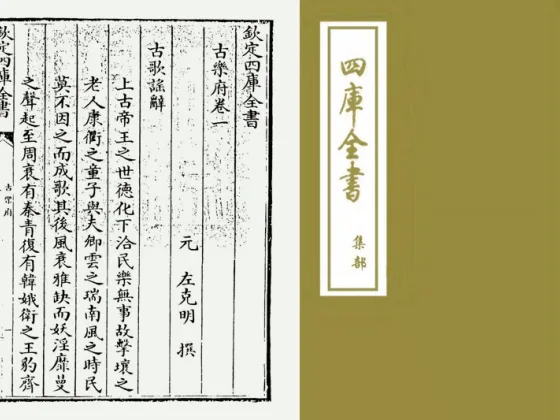 四庫全書
集部
欽定四庫全書
古樂府卷一
元 左克明 撰
古歌謡辭
上古帝王之世徳化下洽民樂無事故擊壤之
老人康衢之童子與夫卿雲之瑞南風之時民
莫不因之而成歌其後風衰雅缺而妖淫靡曼
之聲起至周衰有秦青復有韓娥衛之王豹齊
欽定四庫全書
古樂府
一